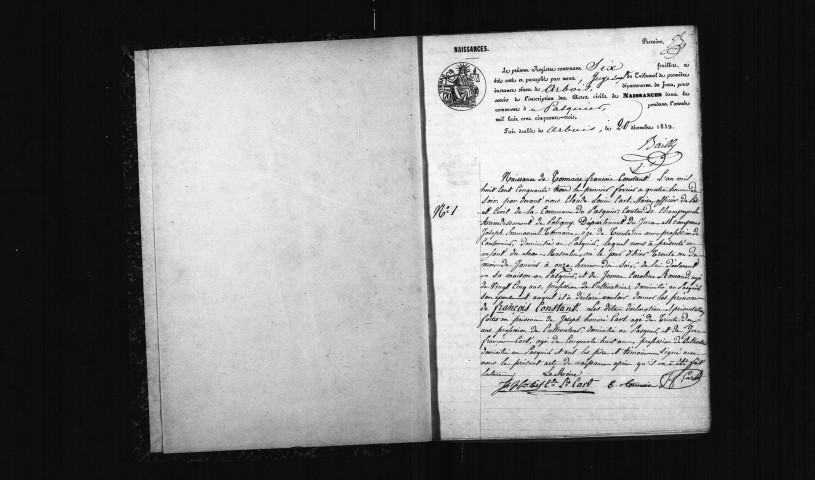 NAISSANCES.
Premier,
Le présent Registre contenant Six feuillets, a
été coté et paraphé par nous, Juge au Tribunal de première
instance séant de Arbois, département du Jura, pour
servir de l'inscription des Actes civils de NAISSANCES dans la
commune d e Pasquier, pendant l'année
mil huit cent cinquante-trois.
Fait double à Arbois, le 20 décembre 1852.
Bailly
N° 1
Naissance de Tonnaire françois Constant. L'an mil
huit Cent Cinquante trois le premier fevrier a quatre heures du
Soir. par devant nous Claude Louis Cart, Maire, officier de l'Etat
Civil de la Commune du Pasquier, Canton de Champagnole
Arrondissement de Poligny. Département du Jura. est comparu
Joseph Emmanuel Tonnaire agé de trente un ans profession de
domicilié au Pasquier, lequel nous a présenté un
enfant du Sexe Masculin, né le jour d'hier trente un du
mois de Janvier à onze heures du Soir, de lui déclarant
en sa maison au Pasquier, et de Jeanne Caroline agé
de Vingt Cinq ans, profession de Cultivatrice, domiciliée au Pasquier
son épouse et auquel il a déclaré vouloir donner les prenoms
de françois Constant. Les dites déclaration et présentation
faites en présence de Joseph honoré Cart, agé de trente
ans, profession de Cultivateur, domicilié au Pasquier, et de Jean
françois Cart, agé de Cinquante huit ans, profession de Cultivateur
domicilié au Pasquier et ont les père et témoins Signé avec
nous le présent acte de naissance après qu'il en a été fait
lecture. Le Maire
Cart